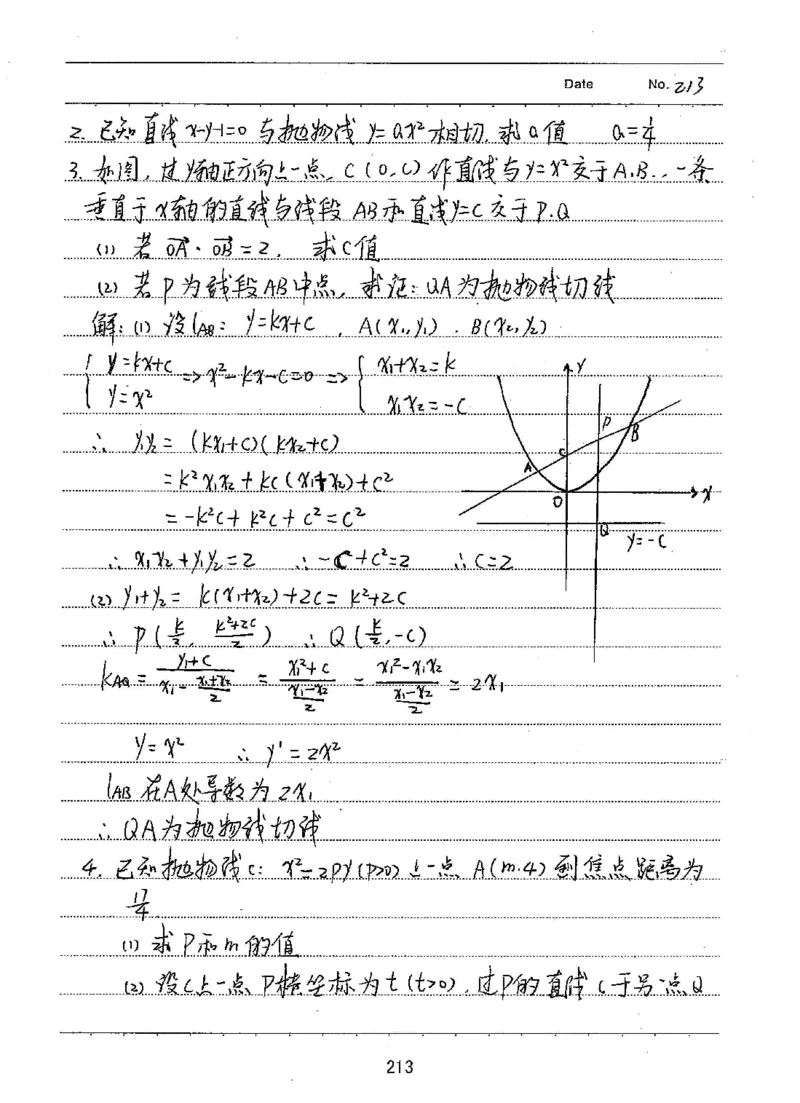 Date No. 213
2. 已知直线 x-y-1=0 与抛物线 y=ax² 相切, 求a值 a=1/4
3. 如图, 过y轴正方向上一点, C(0,C)作直线与y=x²交于A.B., 一条
垂直于x轴的直线与线段AB和直线y=C交于P.Q
(1) 若 OA→·OB→=2, 求C值
(2) 若P为线段AB中点, 求证: QA为抛物线切线
解: (1) 设l_AB: y=kx+c , A(x₁,y₁) . B(x₂,y₂)
{ y=kx+c y=x² => x²-kx-c=0 => { x₁+x₂=k x₁x₂=-c
∴ y₁y₂=(kx₁+c)(kx₂+c)
=k²x₁x₂+kc(x₁+x₂)+c²
=-k²c+k²c+c²=c²
∴ x₁x₂+y₁y₂=2 ∴ -c+c²=2 ∴ c=2
y
x
O
A
B
C
P
Q
y=-c
(2) y₁+y₂=k(x₁+x₂)+2c=k²+2c
∴ P(k/2, (k²+2c)/2) ∴ Q(k/2,-c)
k_AQ=(y₁+c)/(x₁-(x₁+x₂)/2)=(x₁²+c)/((x₁-x₂)/2)=(x₁²-x₁x₂)/((x₁-x₂)/2)=2x₁
y=x² ∴ y'=2x²
l_AB在A处导数为2x₁
∴ QA为抛物线切线
4. 已知抛物线c: x²=2py(p>0)上一点 A(m.4)到焦点距离为
17/4
(1) 求p和m的值
(2) 设C上一点P横坐标为t(t>0), 过P的直线C于另一点Q
213